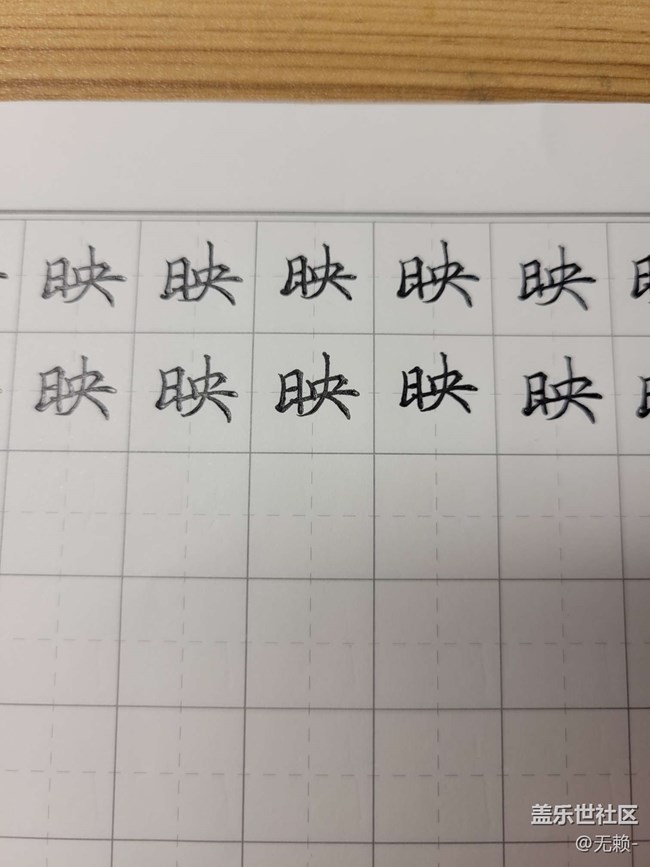 映映映映映
映映映映映
盖乐世社区
@无赖-